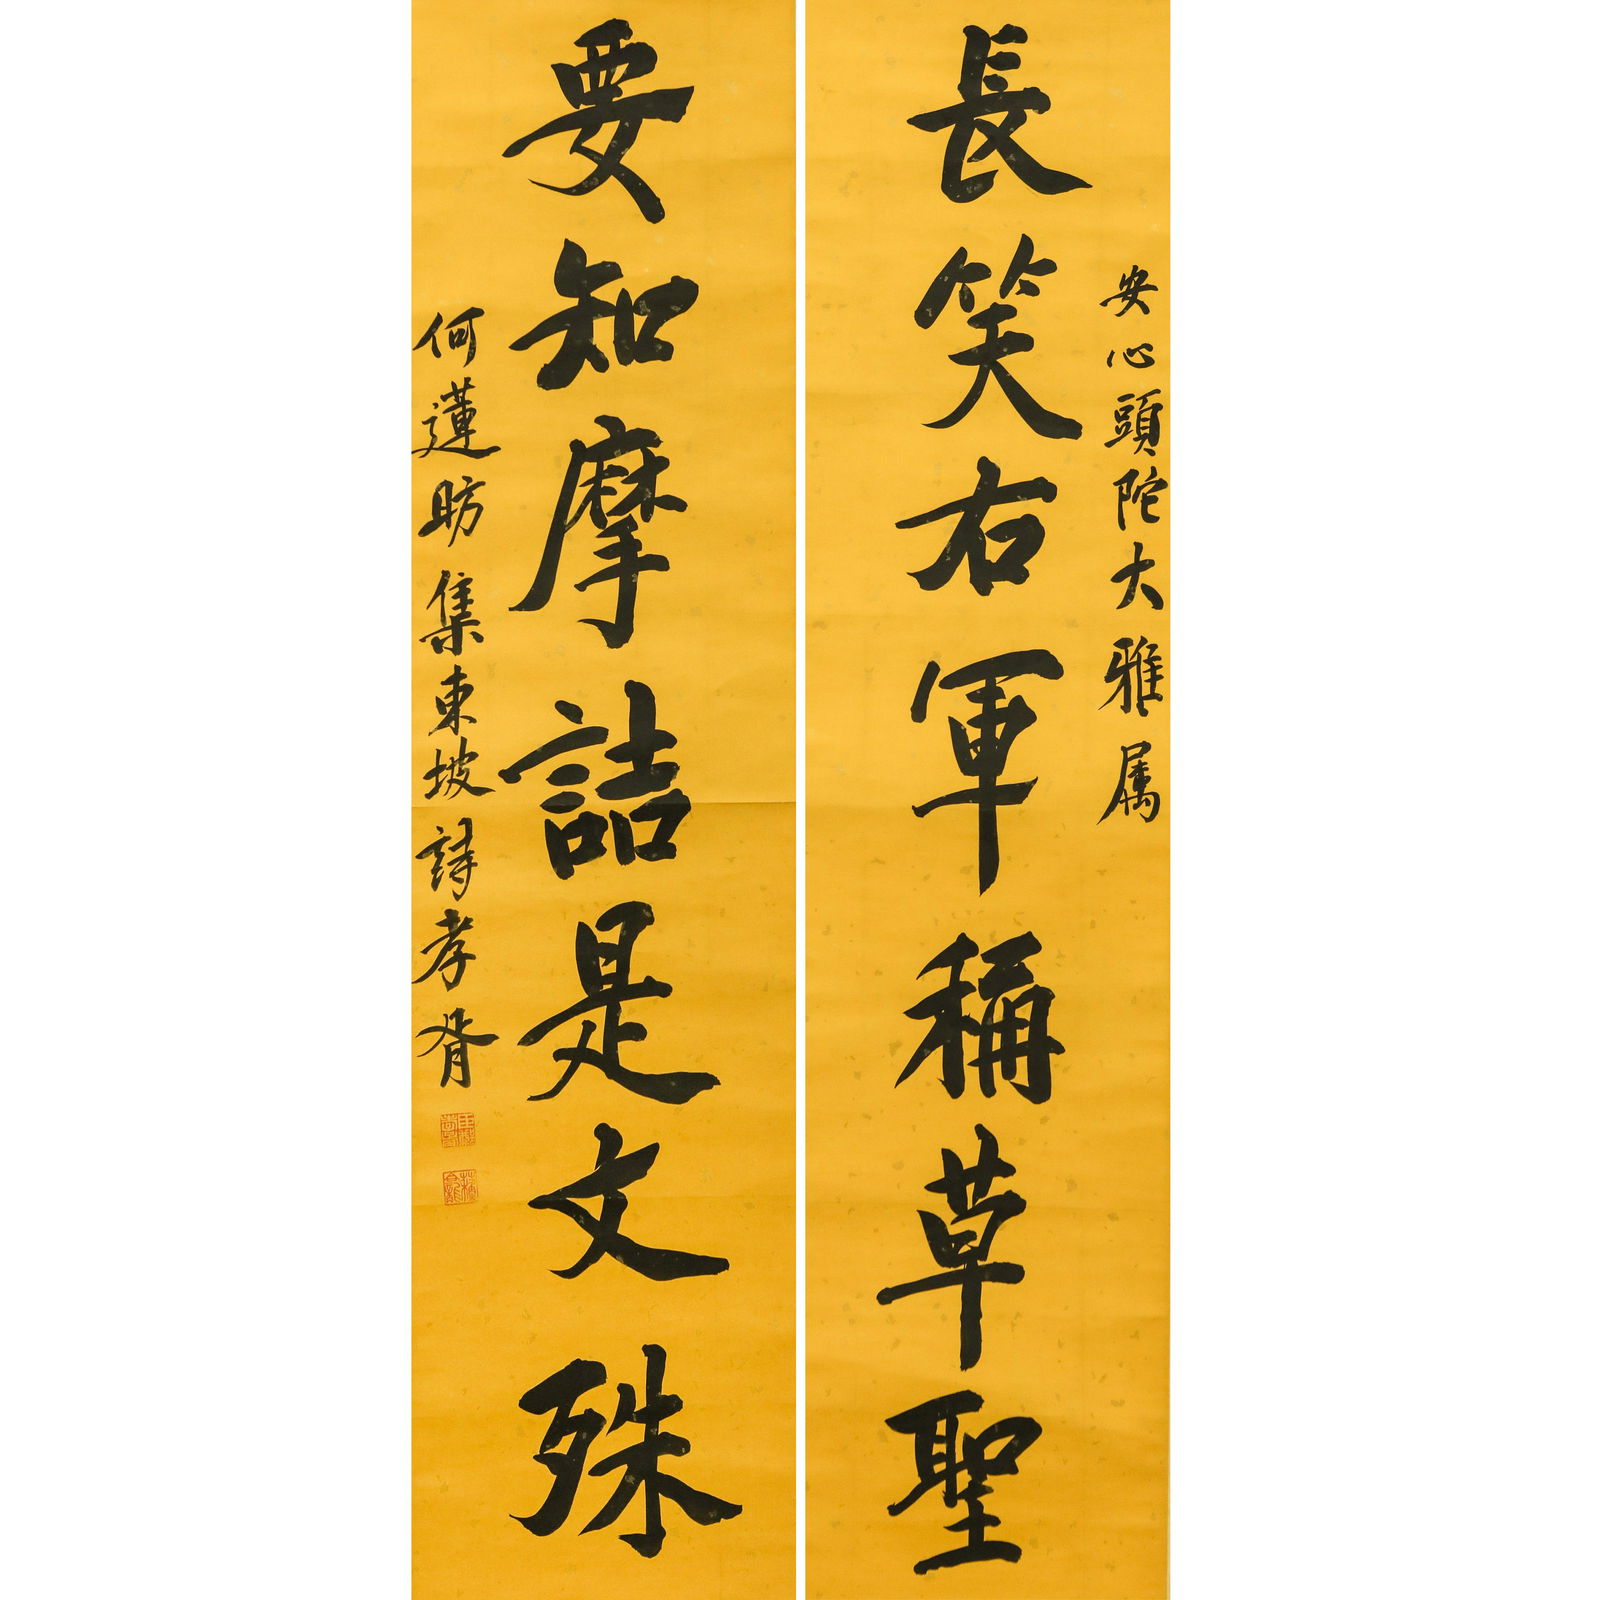 安心頭陀大雅属
長笑右軍稱草聖
要知摩詰是文殊
何蓮昉集東坡詩孝胥